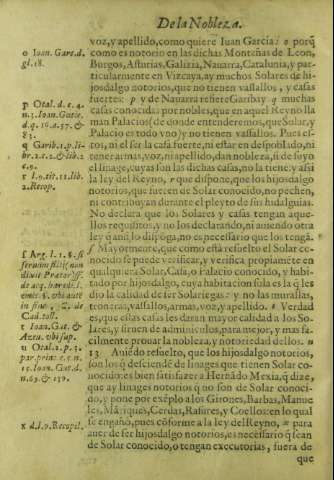 De la Nobleza.
voz, y apellido, como quiere Iuan Garcia: o porq̃
como es notorio en las dichas Montañas de Leon,
Burgos, Asturias, Galizia, Nauarra, Catalunia, y par-
ticularmente en Vizcaya, ay muchos Solares de hi-
josdalgo notorios, que no tienen vassallos, y casas
fuertes: p y de Nauarra refiere Garibay q muchas
casas conocidas por nobles, que en aquel Reyno lla
man Palacios (de donde entenderemos, que Solar, y
Palacio es todo vno) y no tienen vassallos. Pues es-
tos, ni el ser la casa fuerte, ni estar en despoblado, ni
tener armas, voz, ni apellido, dan nobleza, si de suyo
el linage, cuyas son las dichas casas, no la tiene, y assi
la ley del Reyno, r que dispone, que los hijosdalgo
notorios, que fueren de Solar conocido, no pechen,
ni contribuyan durante el pleyto de sus hidalguias.
No declara que los Solares y casas tengan aque-
llos requisitos, y no los declarando, ni auiendo otra
ley q̃ assi lo disponga, no es necessario que los tengã.
s Mayormente, que como esta refuelto el Solar co-
nocido se puede verificar, y verifica propiaméte en
qualquiera Solar, Casa, o Palacio conocido, y habi-
tado por hijosdalgo, cuya habitacion sola es la q̃ les
dio la calidad de ser Solariegas: y no las murallas,
troneras, vassallos, armas, voz, y apellido. t Verdad
es, que estas casas les daran mayor calidad a los So-
lares, y siruen de adminiculos, para mejor, y mas fa-
cilmente prouar la nobleza, y notoriedad dellos. u
13 Auiẽdo resuelto, que los hijosdalgo notorios,
son los q̃ desciendẽ de linages que tienen Solar co-
nocido: es bien satisfazer a Hernãdo Mexia, q̃ dize,
que ay linages notorios q̃ no son de Solar conoci-
do, y pone por exẽplo a los Girones, Barbas, Manue
les, Mãriques, Cerdas, Rasures, y Coellos: en lo qual
se engaño, pues cõforme a la ley del Reyno, x para
auer de ser hijosdalgo notorios, es necessario q̃ sean
de Solar conocido, o tengan executorias, fuera de
que
o Ioan. Gars. d.
gl. 18.
p Otal. d. c. 4.
n. 3. Ioan. Gutie.
d. q. 14. a. 57. &
83.
q Garib. 1. p. li-
br. 2. c. 2. & lib. 2
c. 9.
r l. 9. tit. 11. lib.
2. Recop.
s Arg. l. 1. §. si
de acq. haered. l.
in fine, C. de
Cad. toll.
t Ioan. Gut. &
Azeu. vbi sup.
u Otal. 2. p. 3.
par. princ. c. 2. n.
15. Ioan. Gut. d.
n. 69. & 130.
x d. l. 9. Recopil.